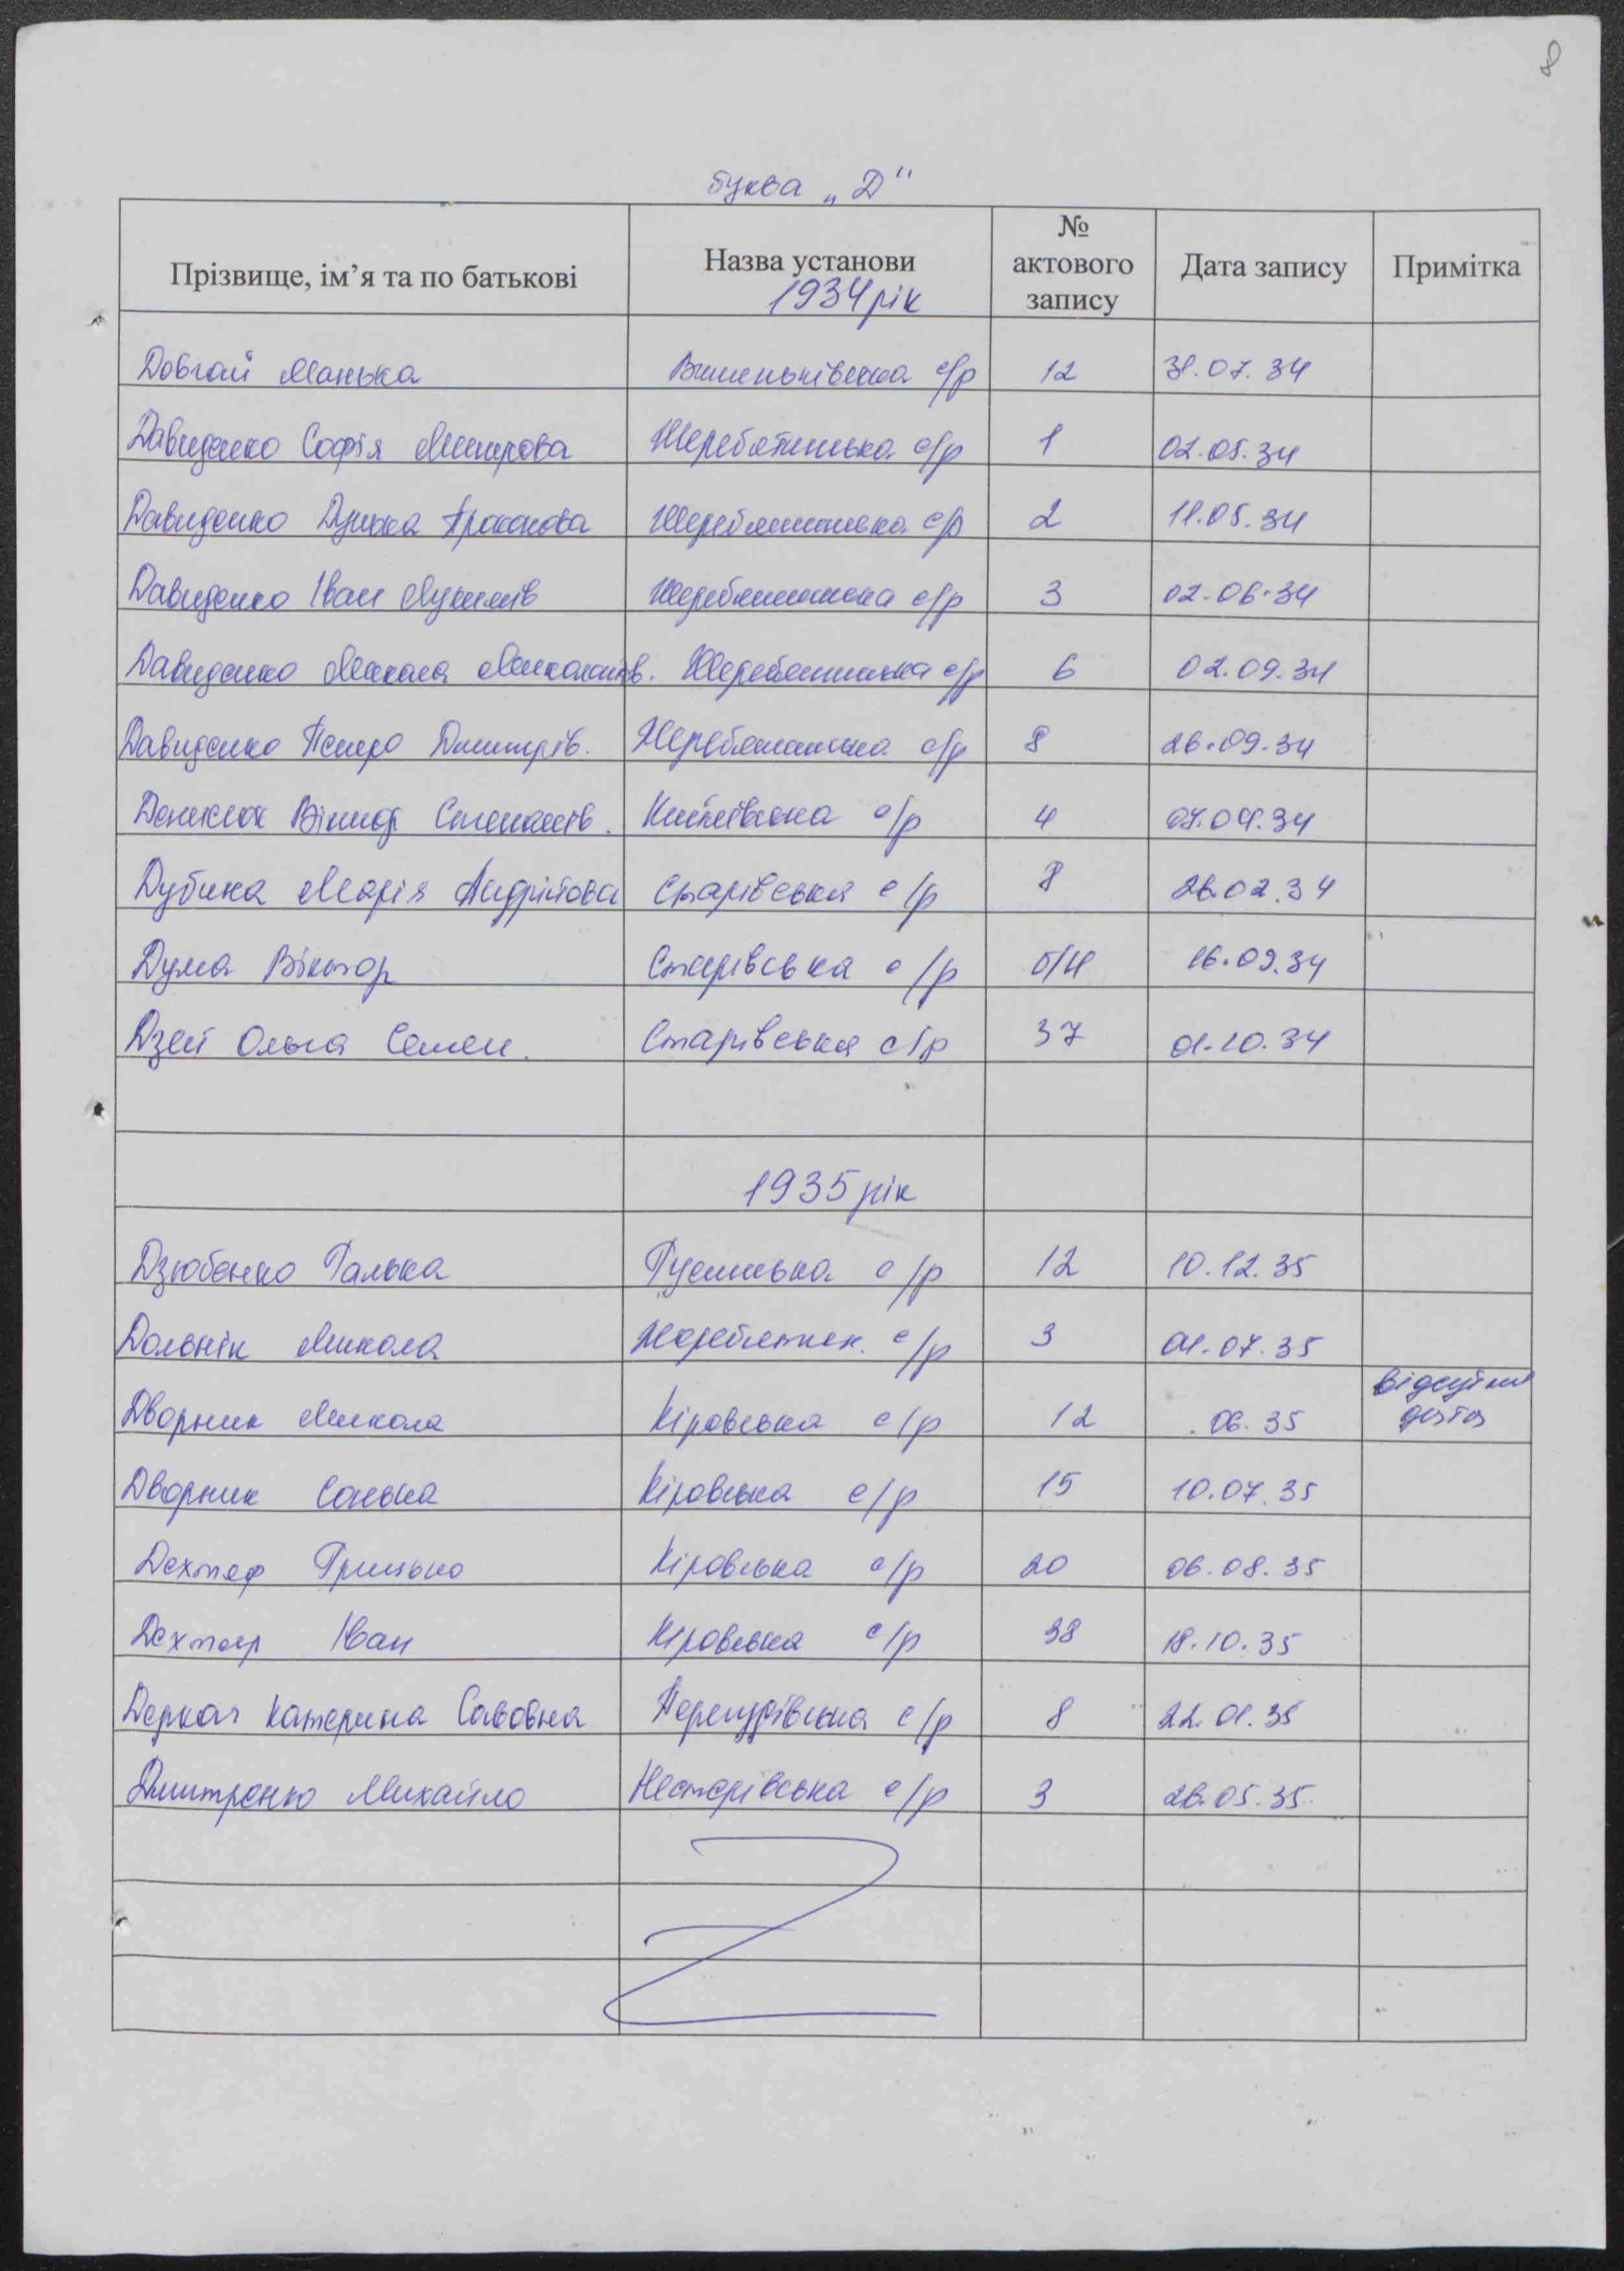 8
буква „Д"
Прізвище, ім'я та по батькові Назва установи 1934 рік № актового запису Дата запису Примітка
Довгай Манька с/р 12 31.07.34
Давиденко Софія Жеребятинська с/р 1 02.05.34
Давиденко Дунька Прокопова Жеребятинська с/р 2 11.05.34
Давиденко Іван Жеребятинська с/р 3 02.06.34
Давиденко Микола Миколаїв. Жеребятинська с/р 6 02.09.34
Давиденко Петро Дмитрів. Жеребятинська с/р 8 26.09.34
Віктор Степанів. с/р 4 34
Дубина Марія Андрійова Старівська с/р 8 26.02.34
Дума Віктор Старівська с/р б/н 16.09.34
Дзей Ольга Семен. Старівська с/р 37 01.10.34
1935 рік
Дзюбенко Галька Гусинська с/р 12 10.12.35
Дольнік Микола Жеребятин. с/р 3 01.07.35
Дворник Микола Кіровська с/р 12 .06.35 відсутня дата
Дворник Сонька Кіровська с/р 15 10.07.35
Дехтяр Грицько Кіровська с/р 20 06.08.35
Дехтяр Іван Кіровська с/р 38 18.10.35
Деркач Катерина Савовна с/р 8 22.01.35
Дмитренко Михайло Нестерівська с/р 3 26.05.35